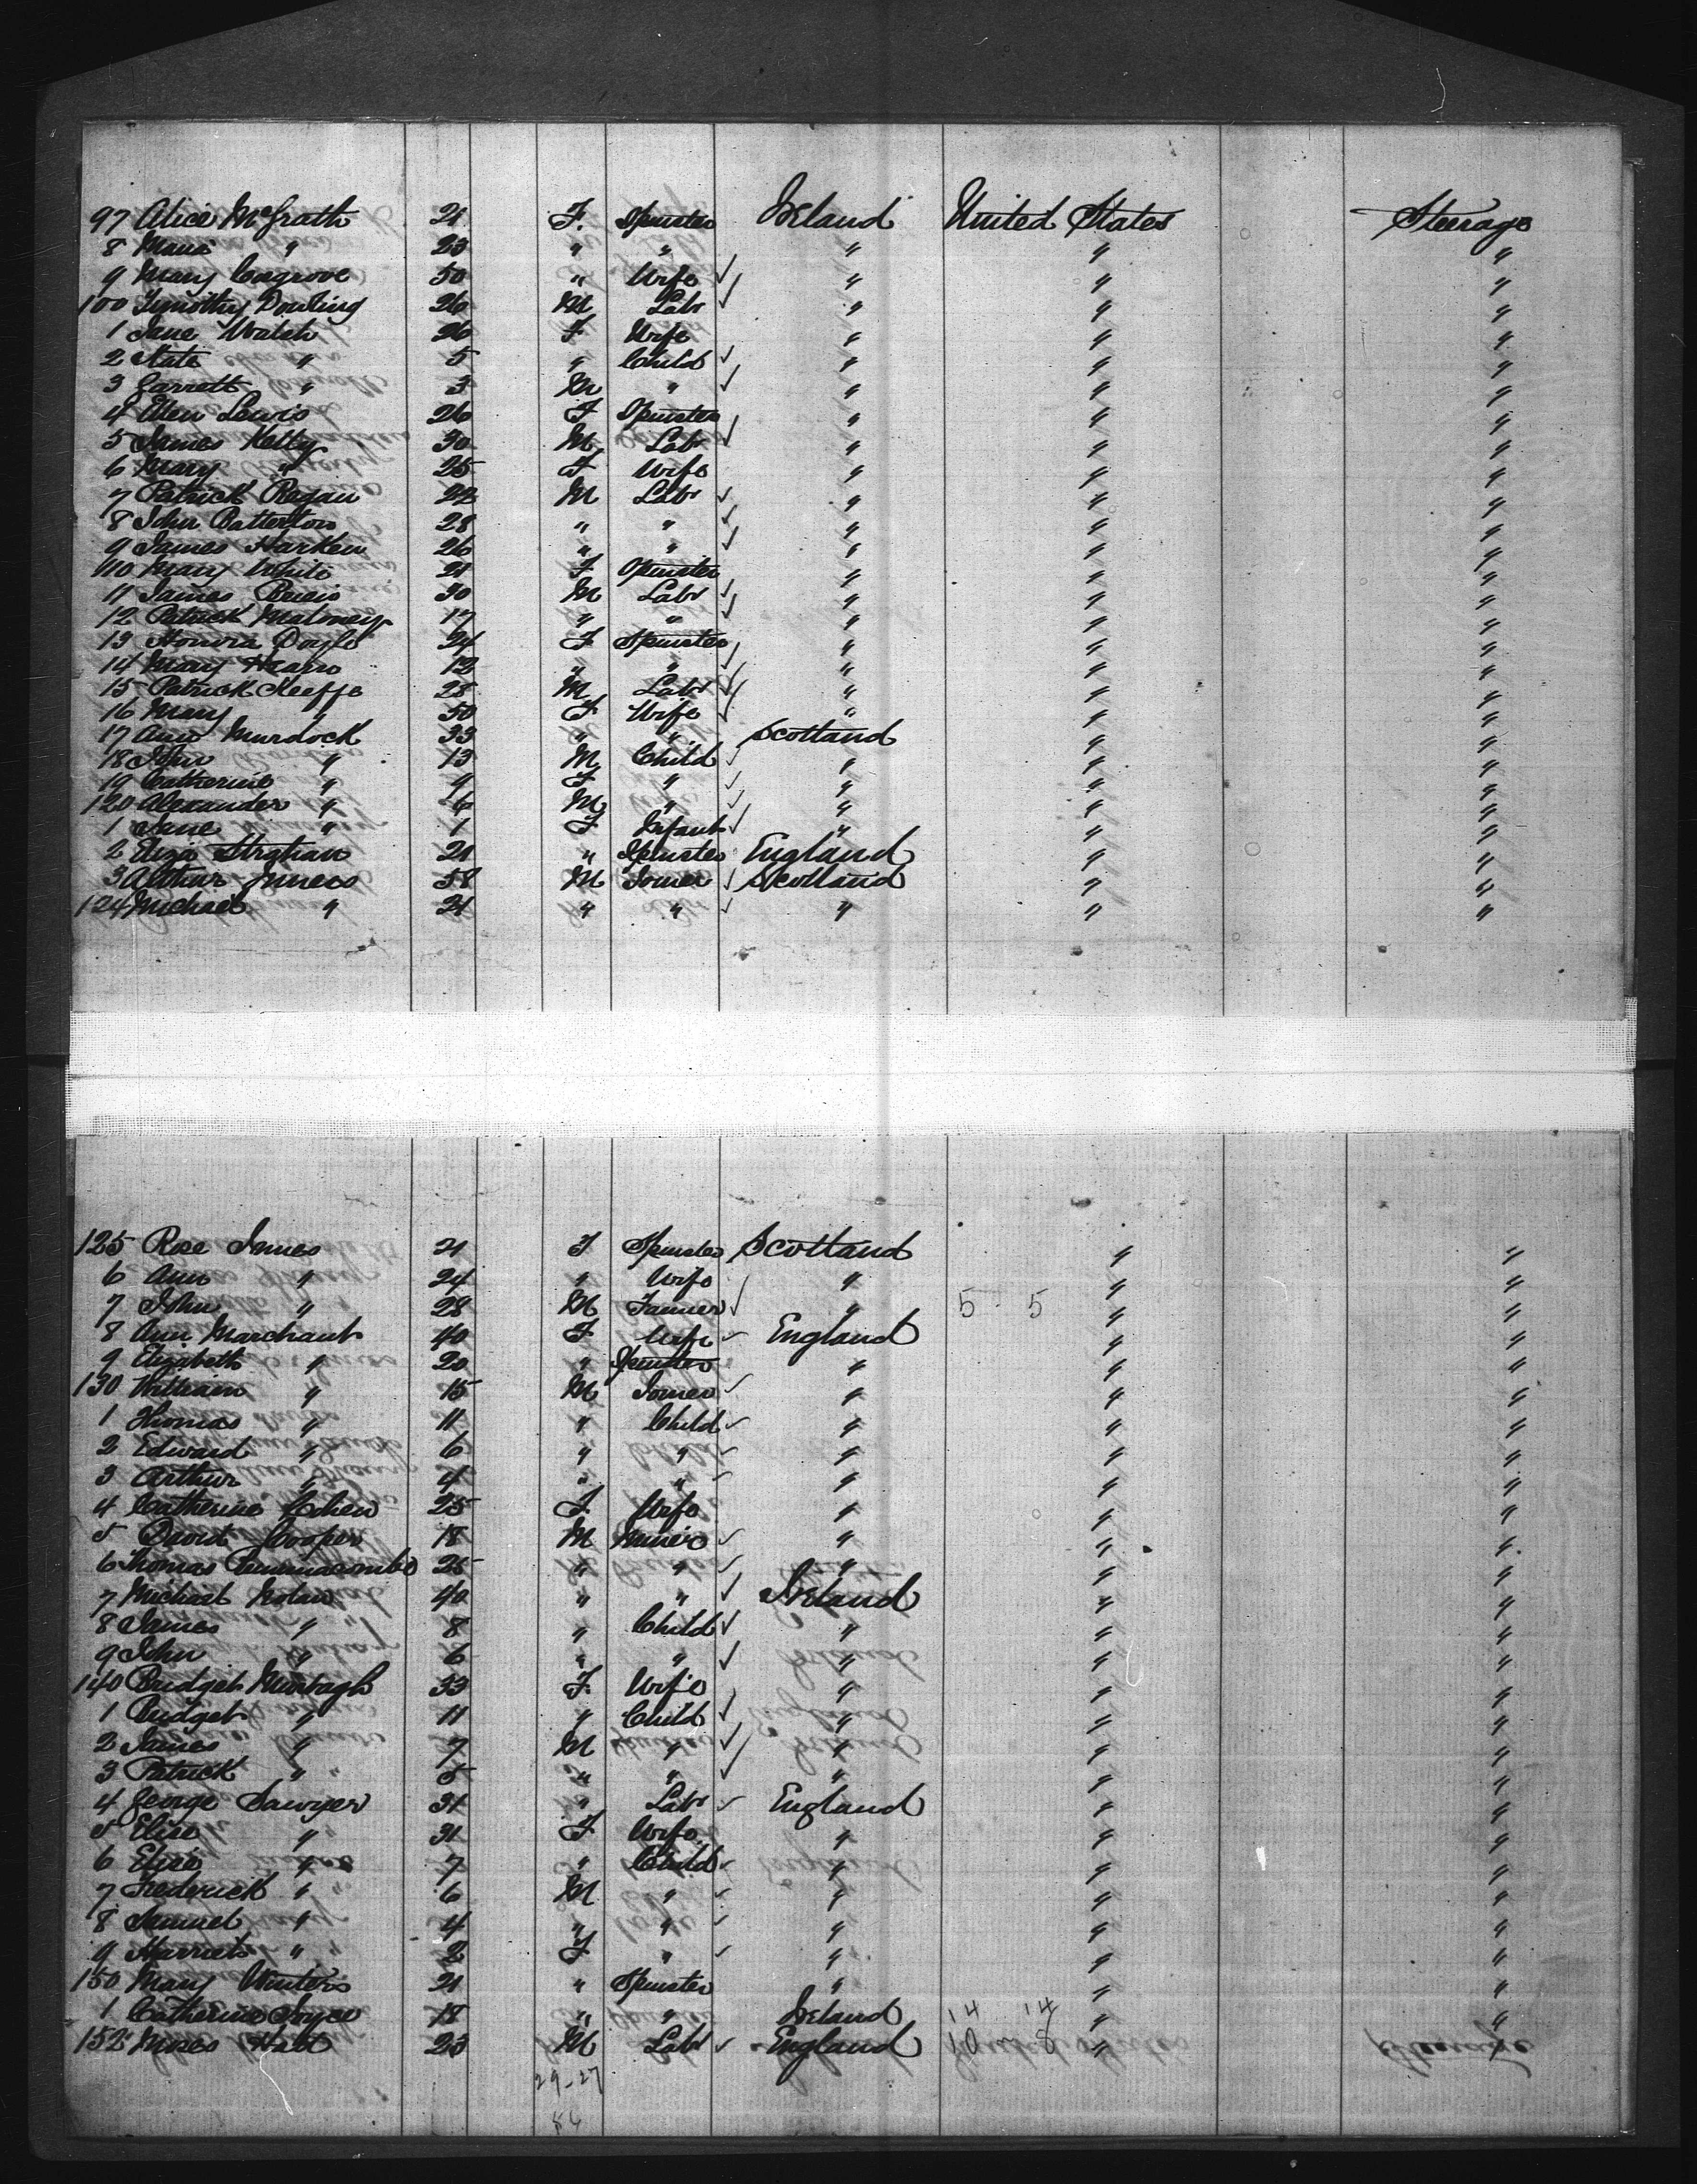 97 Alice McGrath 21 F. Spinster Ireland United States Steerage
8 Maria " 23 " " " " "
9 Mary Cosgrove 50 " Wife " " "
100 Timothy Dowling 26 M Labr " " "
1 Jane Walsh 26 F Wife " " "
2 Kate " 5 " Child " " "
3 Garrett " 3 M " " " "
4 Ellen Lewis 26 F Spinster " " "
5 James Kelly 30 M Labr " " "
6 Mary " 25 F Wife " " "
7 Patrick Regan 22 M Labr " " "
8 John Batterton 28 " " " " "
9 James Harken 26 " " " " "
110 Mary White 21 F Spinster " " "
11 James 30 M Labr " " "
12 Patrick Maloney 17 " " " " "
13 Honora Doyle 24 F Spinster " " "
14 Mary 12 " " " " "
15 Patrick Keeffe 28 M Labr " " "
16 Mary 50 F Wife " " "
17 Ann Murdock 33 " " Scotland " "
18 John " 13 M Child " " "
19 Catherine " 9 F " " " "
120 Alexander " 6 M " " " "
1 Jane " 1 F Infant " " "
2 Eliza Strahan 21 " Spinster England " "
3 Arthur Innes 58 M Joiner Scotland " "
124 Michael " 21 " " " " "
125 Rose Innes 21 F Spinster Scotland " "
6 Ann " 24 " Wife " " "
7 John " 28 M Farmer " 5 5 " "
8 Ann Marchant 40 F Wife England " "
9 Elizabeth " 20 " Spinster " " "
130 William " 15 M Joiner " " "
1 Thomas " 11 " Child " " "
2 Edward " 6 " " " " "
3 Arthur " 4 " " " " "
4 Catherine Cohen 25 F Wife " " "
5 David Cooper 18 M Miner " " "
6 Thomas 25 " " " " "
7 Michael Nolan 40 " " Ireland " "
8 James " 8 " Child " " "
9 John " 6 " " " " "
140 Bridget Murtagh 33 F Wife " " "
1 Bridget " 11 " Child " " "
2 James " 7 M " " " "
3 Patrick " 5 " " " " "
4 George Sawyer 31 " Labr England " "
5 Eliza " 31 F Wife " " "
6 Eliza " 7 " Child " " "
7 Frederick " 6 M " " " "
8 Samuel " 4 " " " " "
9 Harriet " 2 F " " " "
150 Mary Winters 21 " Spinster " " "
1 Catherine Joyce 18 " " Ireland 14 14 " "
152 Moses Hall 23 M Labr England 10 8 " "
29-27
56